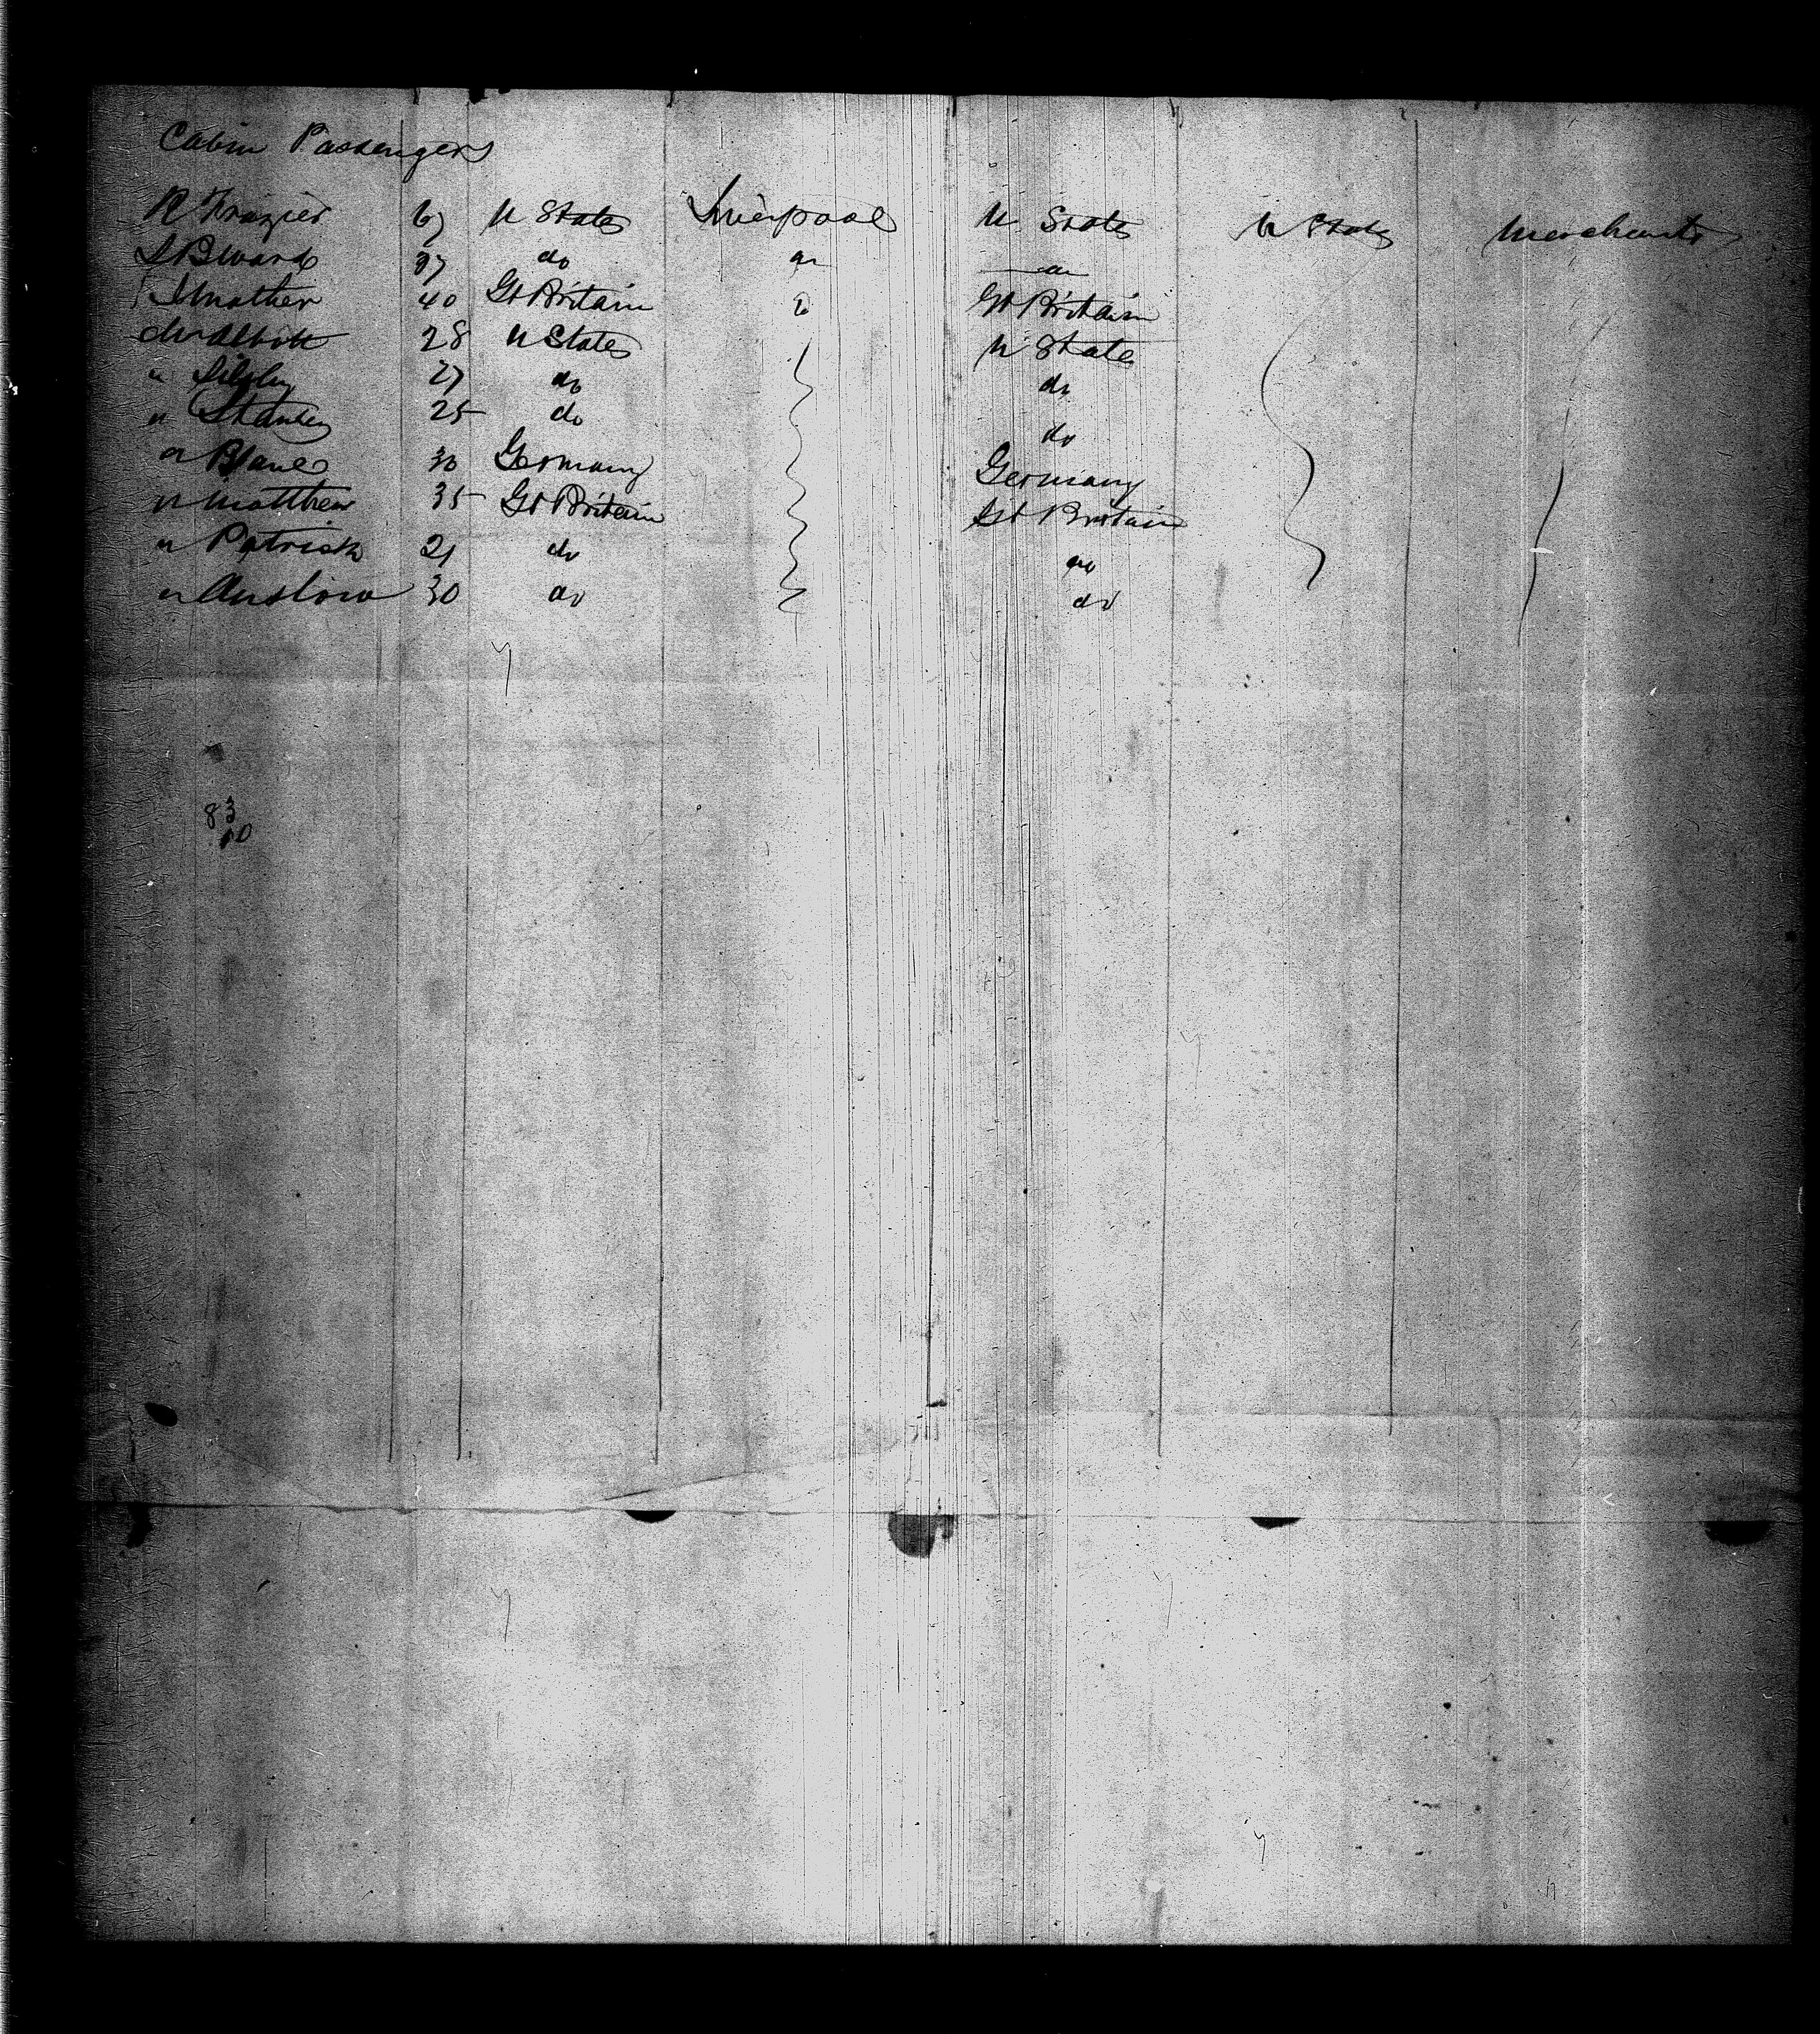 Cabin Passengers
R Frazier 67 U States Liverpool U States U States Merchants
S B Ward 37 do do do
Mather 40 Gt Britain Gt Britain
Mr Abbott 28 U States U States
" 27 do do
" Stanley 25 do do
" Blane 30 Germany Germany
" Matthew 35 Gt Britain Gt Britain
" Patrick 21 do do
" Anslow 30 do do
83
10